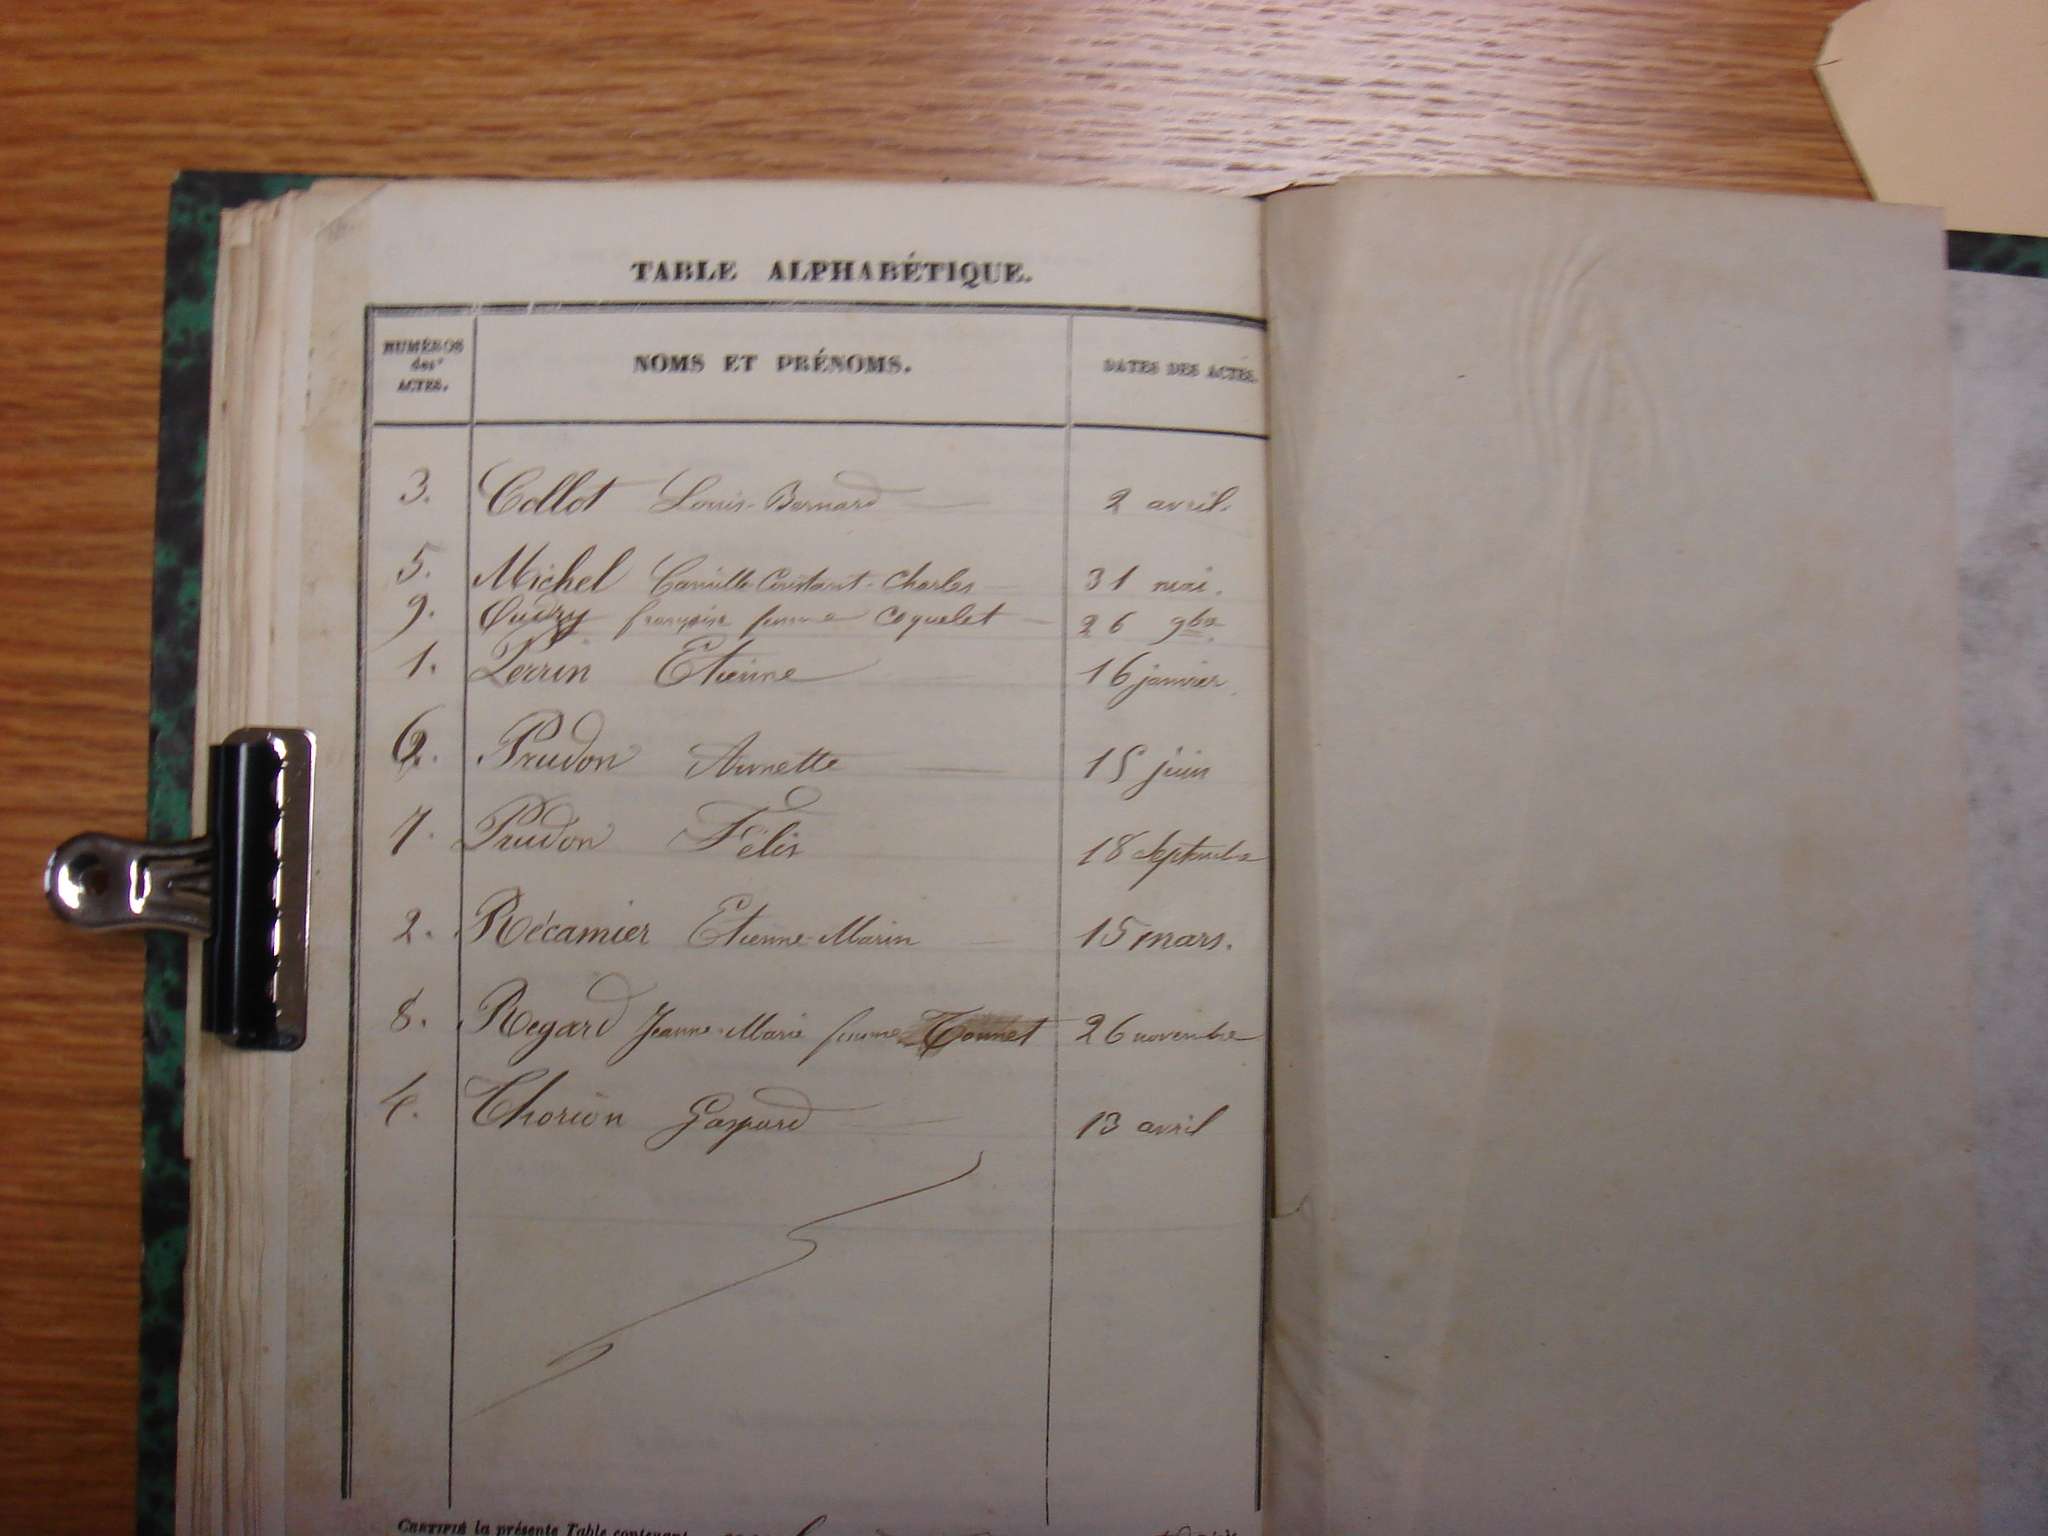 TABLE ALPHABÉTIQUE.
NUMÉROS des ACTES. NOMS ET PRÉNOMS. DATES DES ACTES.
3. Collot Louis-Bernard 2 avril.
5. Michel Camille Constant-Charles 31 mai.
9. Oudry françoise femme Coquelet 26 9bre
1. Perrin Etienne 16 janvier.
6. Prudon Annette 15 juin
7. Prudon Félix 18 Septembre
2. Récamier Etienne-Marin 15 mars.
8. Regard Jeanne-Marie femme Tonnet 26 novembre
4. Thorion Gaspard 13 avril
CERTIFIÉ la présente Table contenant